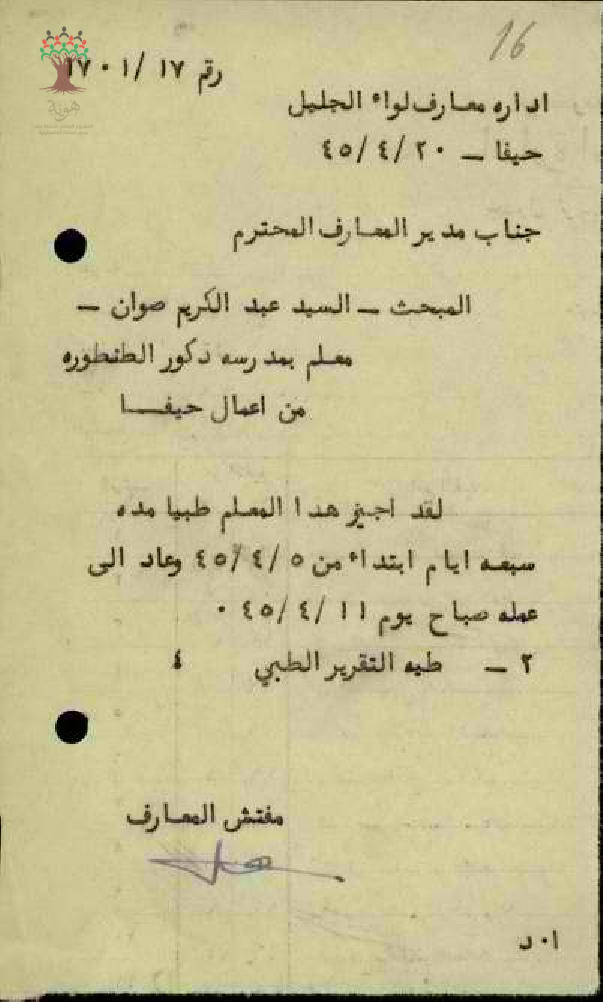 16
رقم ١٧/١٧٠١
اداره معارف لواء الجليل
حيفا – ٤٥/٤/٢٠
جناب مدير المعارف المحترم
المبحث – السيد عبد الكريم صوان –
معلم بمدرسه ذكور الطنطوره
من اعمال حيفا
لقد اجيز هذا المعلم طبيا مده
سبعه ايام ابتداء من ٤٥/٤/٥ وعاد الى
عمله صباح يوم ٤٥/٤/١١ ٠
٢ – طيه التقرير الطبي ٤
مفتش المعارف
ا٠د
هوية